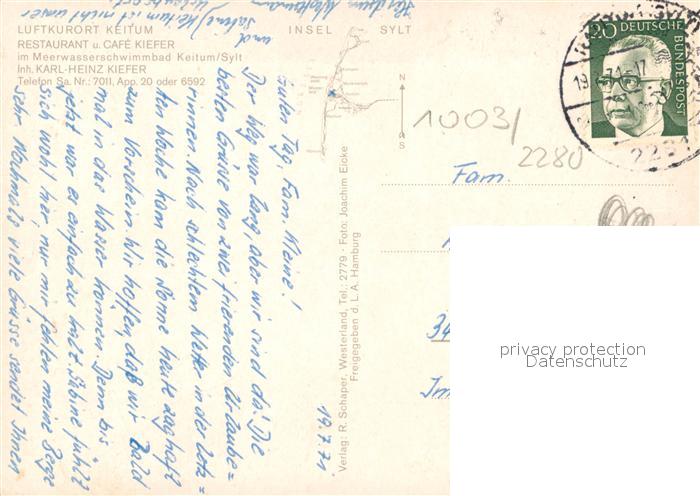 LUFTKURORT KEITUM
RESTAURANT u. CAFÉ KIEFER
im Meerwasserschwimmbad Keitum/Sylt
Inh. KARL-HEINZ KIEFER
Telefon Sa. Nr.: 7011, App. 20 oder 6592
INSEL SYLT
N
S
20
DEUTSCHE
BUNDESPOST
1003/
2280
Fam.
34
Im
Verlag: R. Schaper, Westerland, Tel.: 2779 · Foto: Joachim Eicke
Freigegeben d. L. A. Hamburg
19.7.71.
Guten Tag, Fam. Kleine!
Der Weg war lang aber wir sind da! Die
besten Grüsse von zwei frierenden Urlaube=
rinnen. Nach schlechtem Wetter in der letz=
ten Woche kam die Sonne heute zaghaft
zum Vorschein. Wir hoffen, daß wir bald
mal in das Wasser können. Denn bis
jetzt war es einfach zu kalt. Sabine fühlt
sich wohl hier, nur mir fehlen meine Berge
sehr. Nochmals viele Grüsse sendet Ihnen
und Sabine
Keitum ist nicht unser
privacy protection
Datenschutz